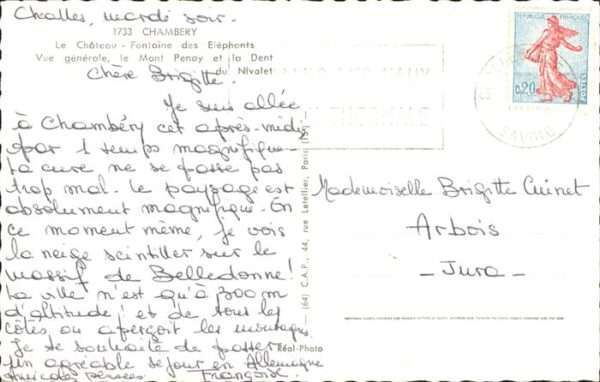 Challes, mardi soir.
1733 CHAMBERY
Le Château - Fontaine des Eléphants
Vue générale, le Mont Penay et la Dent
du Nivolet
Chère Brigitte.
Je suis allée
à Chambéry cet après-midi
par 1 temps magnifique.
La cure ne se passe pas
trop mal. Le paysage est
absolument magnifique. En
ce moment même, je vois
la neige scintiller sur le
massif de Belledonne!
La ville n'est qu'à 300 m
d'altitude! et de tous les
côtés, on aperçoit les montagnes
Je te souhaite de passer
un agréable séjour en Allemagne
Amicales pensées
Françoise
Réal-Photo
(64) C.A.P., 44, rue Letellier, Paris (15e)
REPUBLIQUE FRANÇAISE
0,20
POSTES
SAVOIE
Mademoiselle Brigitte Cuinet
Arbois
- Jura -